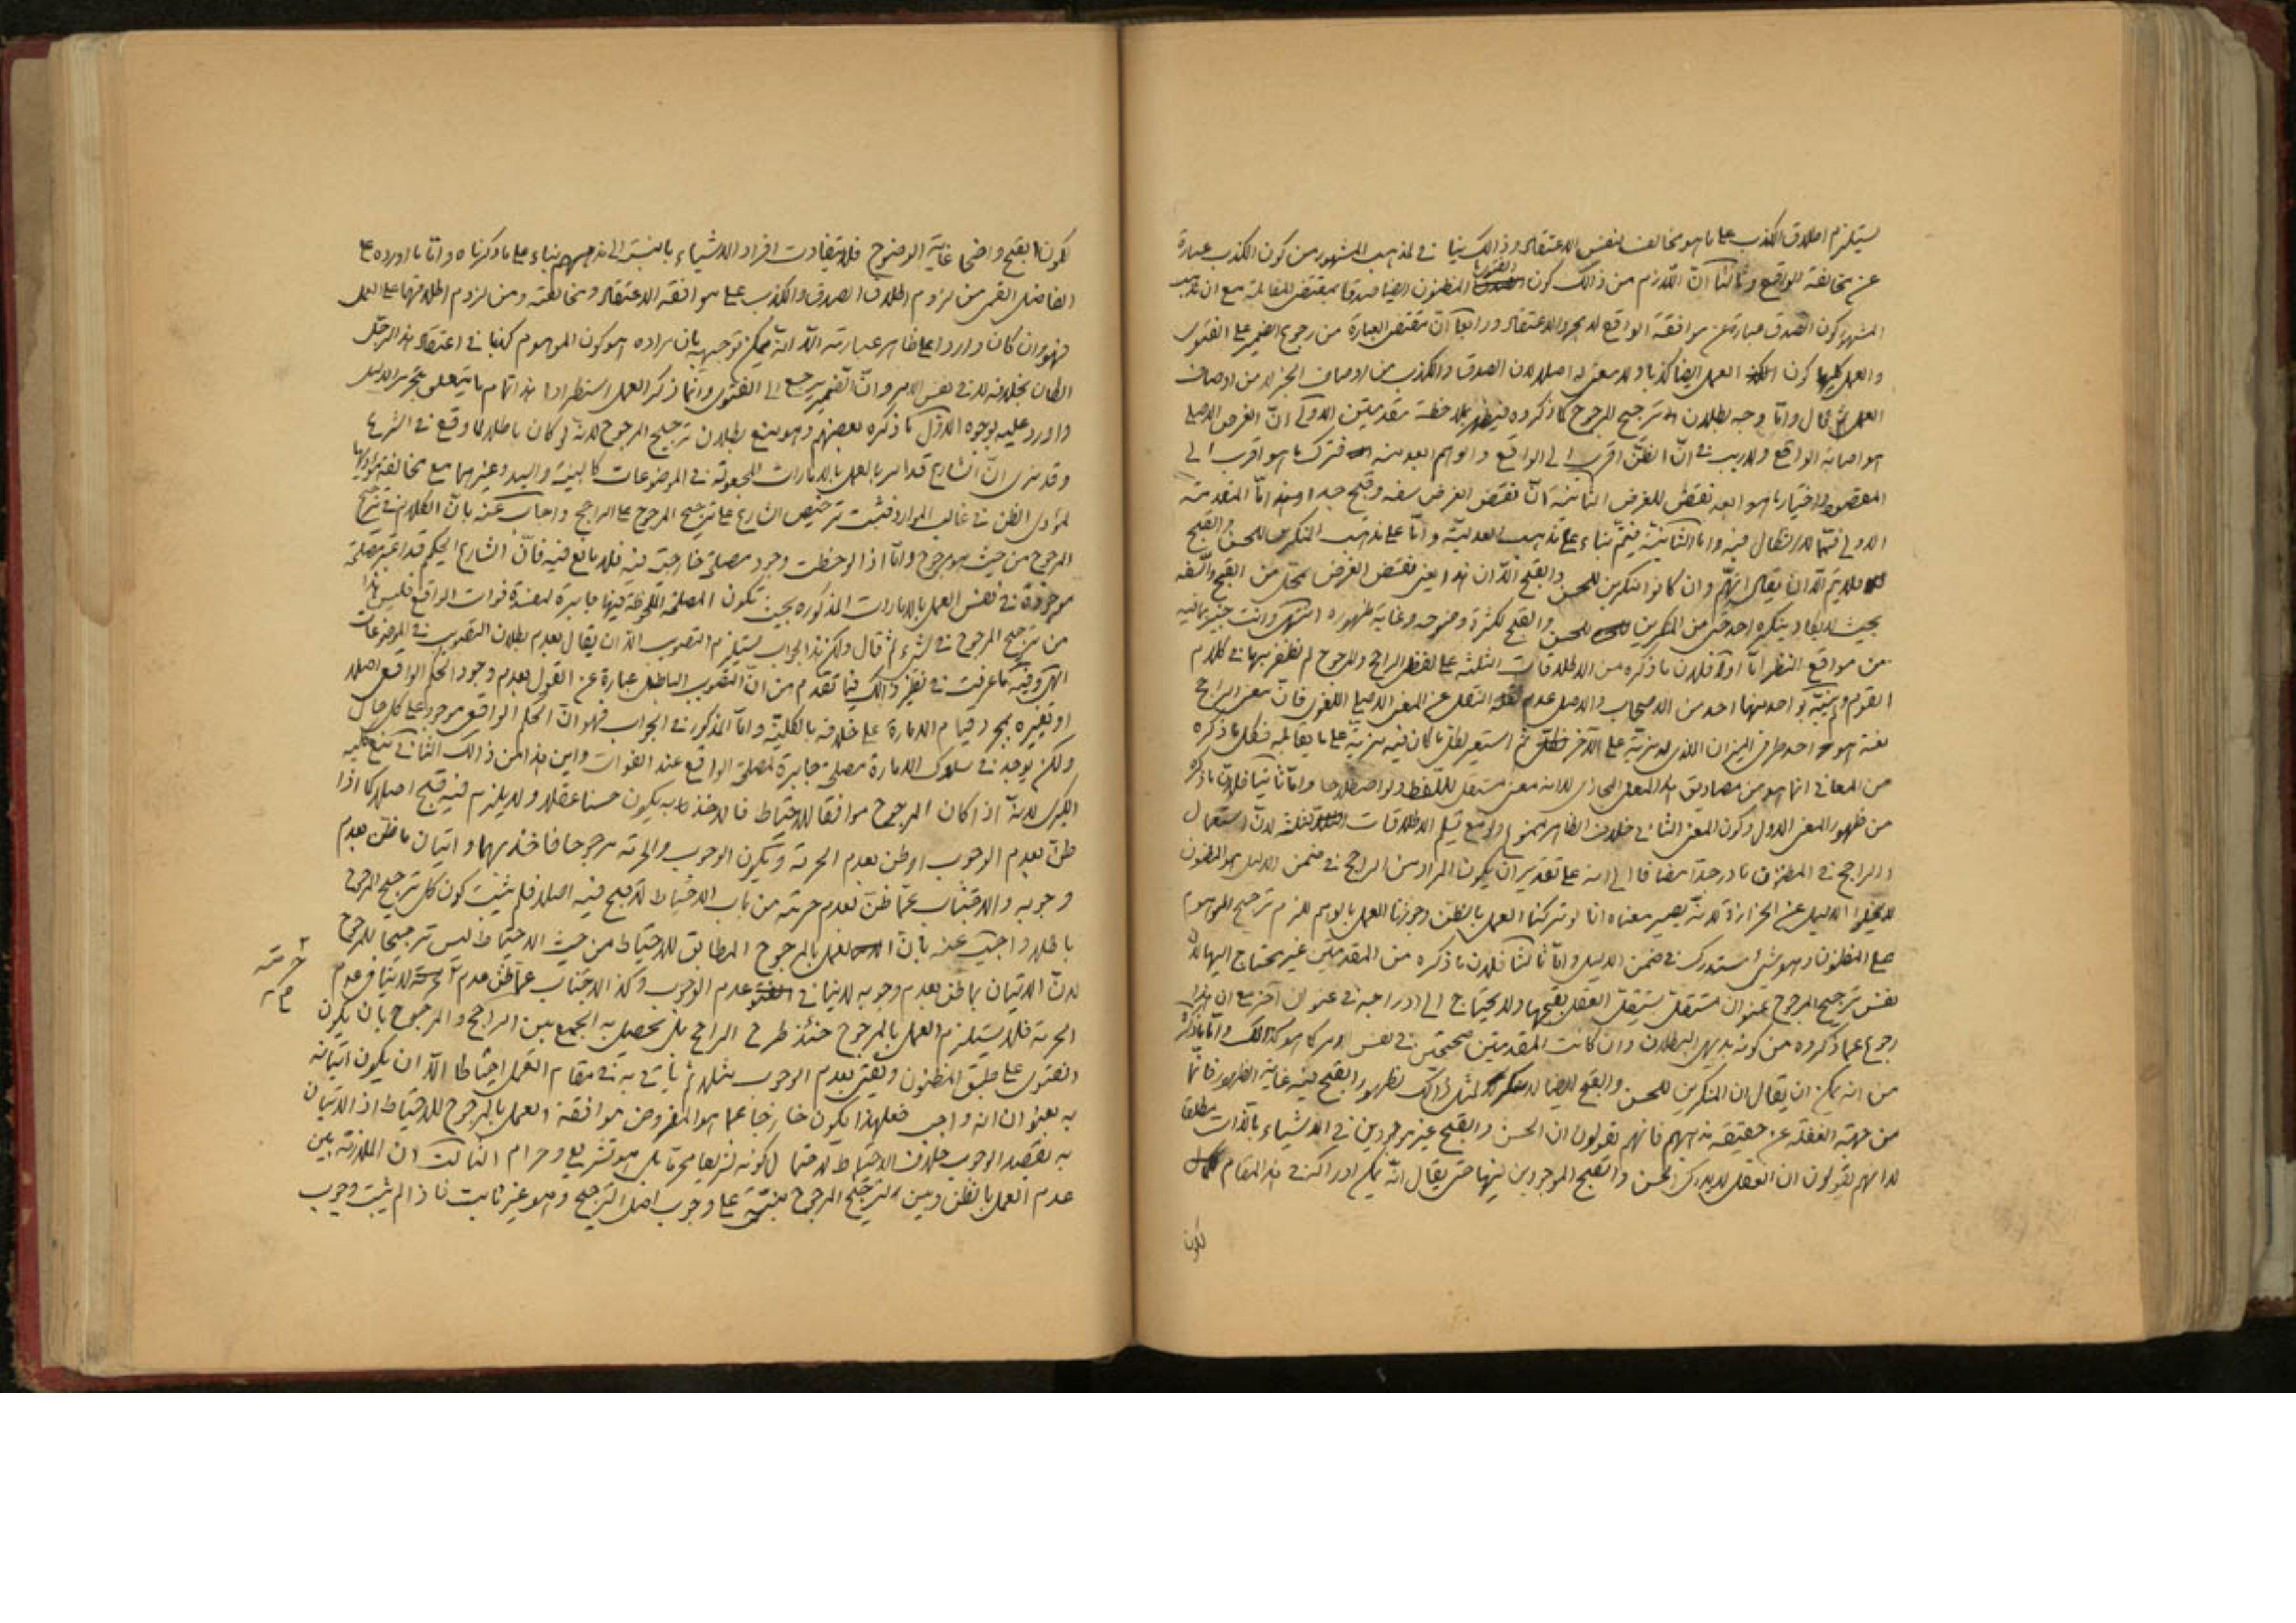 يستلزم اطلاق الكذب على ما هو مخالف لنفس الاعتقاد وذالك ينافي لمذهب المشهور من كون الكذب عبارة
عن مخالفة الواقع وثالثا انّ اللازم من ذالك كون الفتوى بالمظنون ايضا صدقا بمقتضى المقابلة مع ان مذهب
المشهور كون الصدق عبارة عن موافقة الواقع لا مجرد الاعتقاد ورابعا انّ مقتضى العبارة من رجوع الضمير على الفتوى
والعمل كليهما كون العمل ايضا كذبا ولا معنى له اصلا لان الصدق والكذب من اوصاف الخبر لا من اوصاف
العمل ثم قال وامّا وجه بطلان ترجيح المرجوح كما ذكروه فيظهر بملاحظة مقدمتين الاولى انّ الغرض الاصلي
هو اصابة الواقع ولا ريب في انّ الظنّ اقرب الى الواقع والوهم ابعد منه فترك ما هو اقرب الى
المقصود واختيار ما هو ابعد نقض للغرض الثانية انّ نقض الغرض سفه وقبيح جدا امّا المقدمة
الاولى فممّا لا اشكال فيه وامّا الثانية فيتمّ بناء على مذهب العدلية وامّا على مذهب المنكرين للحسن والقبح
فلا يتم الّا ان يقال انهم وان كانوا منكرين للحسن والقبح الّا ان هذا يعني نقض الغرض بمحلّ من القبح والسفه
بحيث لا يكاد ينكره احد حتى من المنكرين للحسن والقبح لكثرة وضوحه وغاية ظهوره انتهى وانت خبير بما فيه
من مواقع النظر امّا اولا فلان ما ذكره من الاطلاقات الثلثة على لفظ الراجح والمرجوح لم نظفر بها في كلام
القوم ولم ينبّه بواحد منها احد من الاصحاب والاصل عدم النقل عن المعنى الاصلي اللغوي فانّ معنى الراجح
لغة هو احد طرفي الميزان الذي له مزيّة على الآخر ثم استعير لكل ما كان فيه مزيّة على ما يقابله فكل ما ذكره
من المعاني انما هو من مصاديق المعنى المجازي لا انه معنى مستقل للّفظ ولو اصطلاحا وامّا ثانيا فلانّ ما ذكره
من ظهور المعنى الاول وكون المعنى الثاني خلاف الظاهر ممنوع ولو مع تسليم الاطلاقات الثلثة لانّ استعمال
الراجح في المظنون نادر جدّا مضافا الى انه على تقدير ان يكون المراد من الراجح في ضمن الدليل هو المظنون
لا يخلو الدليل عن الحزازة لانّه يصير معناه انا لو تركنا العمل بالظنّ وجوزنا العمل بالوهم للزم ترجيح الموهوم
على المظنون وهو شيئ مستدرك في ضمن الدليل وامّا ثالثا فلان ما ذكره من المقدمتين غير محتاج اليها لانّ
نفس ترجيح المرجوح عنوان مستقلّ يستقلّ العقل بقبحها ولا يحتاج الى ادراجه في عنوان آخر مع ان هذا
رجوع عما ذكروه من كونه بديهي البطلان وان كانت المقدمتين صحيحتين في نفس الامر كما هو كذالك وامّا ما ذكره
من انه يمكن ان يقال ان المنكرين للحسن والقبح ايضا لمثل ذالك لظهور القبح فيه غاية الظهور فانّما
من جهة الغفلة عن حقيقة مذهبهم فانهم يقولون ان الحسن والقبح غير موجودين في الاشياء بالذات مطلقا
لا انهم يقولون ان العقل لا يدرك الحسن والقبح الموجودين فيها حتى يقال انّه يمكن ادراكه في هذا المقام
لكون
لكون القبح واضحا غاية الوضوح فلا يتفاوت افراد الاشياء بالنسبة الى مذهبهم بناء على ما ذكرناه وامّا ما اورده على
الفاضل القمى من لزوم اطلاق الصدق والكذب على موافقة الاعتقاد ومخالفته ومن لزوم اطلاقهما على العمل
فهو وان كان واردا على ظاهر عبارته الّا انّه يمكن توجيهه بان مراده هو كون الموهوم كذبا في اعتقاد هذا الرجل
الظان بخلافه لا في نفس الامر وانّ الضمير يرجع الى الفتوى وانما ذكر العمل استطرادا هذا تمام ما يتعلق بتحرير الدليل
واورد عليه بوجوه الاوّل ما ذكره بعضهم وهو منع بطلان ترجيح المرجوح لانّه لو كان باطلا لما وقع في الشرع
وقد نرى انّ الشارع قد امر بالعمل بالامارات المجعولة في الموضوعات كالبينة واليد وغيرهما مع مخالفة مؤداها
لمؤدى الظن في غالب الموارد فثبت ترخيص الشارع على ترجيح المرجوح على الراجح واجاب عنه بانّ الكلام في ترجيح
المرجوح من حيث هو مرجوح وامّا اذا لوحظت وجود مصلحة خارجية فيه فلا مانع فيه فانّ الشارع الحكيم قد اعتبر مصلحة
موجودة في نفس العمل بالامارات المذكورة بحيث تكون المصلحة الملحوظة فيها جابرة لمفسدة فوات الواقع فليس هذا
من ترجيح المرجوح في شيء ثم قال ولكن هذا الجواب يستلزم التصويب الّا ان يقال بعدم بطلان التصويب في الموضوعات
انتهى وفيه ما عرفت في نظير ذالك فيما تقدم من انّ التصويب الباطل عبارة عن القول بعدم وجود الحكم الواقعي اصلا
او تغيره بمجرد قيام الامارة على خلافه بالكليّة وامّا المذكور في الجواب فهو انّ الحكم الواقعي موجود على كل حال
ولكن يوجد في سلوك الامارة مصلحة جابرة لمصلحة الواقع عند الفوات واين هذا من ذالك الثاني منع كلية
الكبرى لانّه اذا كان المرجوح موافقا للاحتياط فالاخذ به يكون حسنا عقلا ولا يلزم فيه قبح اصلا كما اذا
ظنّ بعدم الوجوب او ظن بعدم الحرمة ويكون الوجوب والحرمة مرجوحا فاخذ بهما واتيان ما ظنّ بعدم
وجوبه والاجتناب عمّا ظنّ بعدم حرمته من باب الاحتياط لا قبح فيه اصلا فلم يثبت كون كل ترجيح المرجوح
باطلا واجيب عنه بانّ العمل بالمرجوح المطابق للاحتياط من حيث الاحتياط ليس ترجيحا للمرجوح
لانّ الاتيان بما ظن بعدم وجوبه لا ينافي عدم الوجوب وكذا الاجتناب عما ظن عدم حرمته لا ينافي عدم
حرمته صح
الحرمة فلا يستلزم العمل بالمرجوح حينئذ طرح الراجح بل يحصل به الجمع بين الراجح والمرجوح بان يكون
الفتوى على طبق المظنون ويفتي بعدم الوجوب مثلا ثم يأتي به في مقام العمل احتياطا الّا ان يكون اتيانه
به بعنوان انه واجب فعلى هذا يكون خارجا عما هو المفروض من موافقة العمل بالمرجوح للاحتياط اذ الاتيان
به بقصد الوجوب خلاف الاحتياط لاحتمال كونه تشريعا محرما بل هو تشريع وحرام الثالث ان الملازمة بين
عدم العمل بالظن وبين ترجيح المرجوح مبنيّة على وجوب اصل الترجيح وهو غير ثابت فاذا لم يثبت وجوب